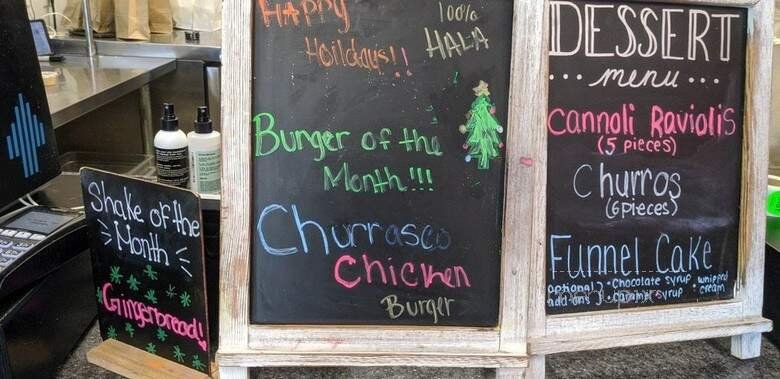 Shake of the
Month
Gingerbread!
HAPPY
Hoildays!!
100%
HALA
Burger of the
Month!!!
Churrasco
Chicken
Burger
DESSERT
menu
Cannoli Raviolis
(5 pieces)
Churros
(6 pieces)
Funnel Cake
optional add-ons } • Chocolate syrup • caramel syrup • whipped cream